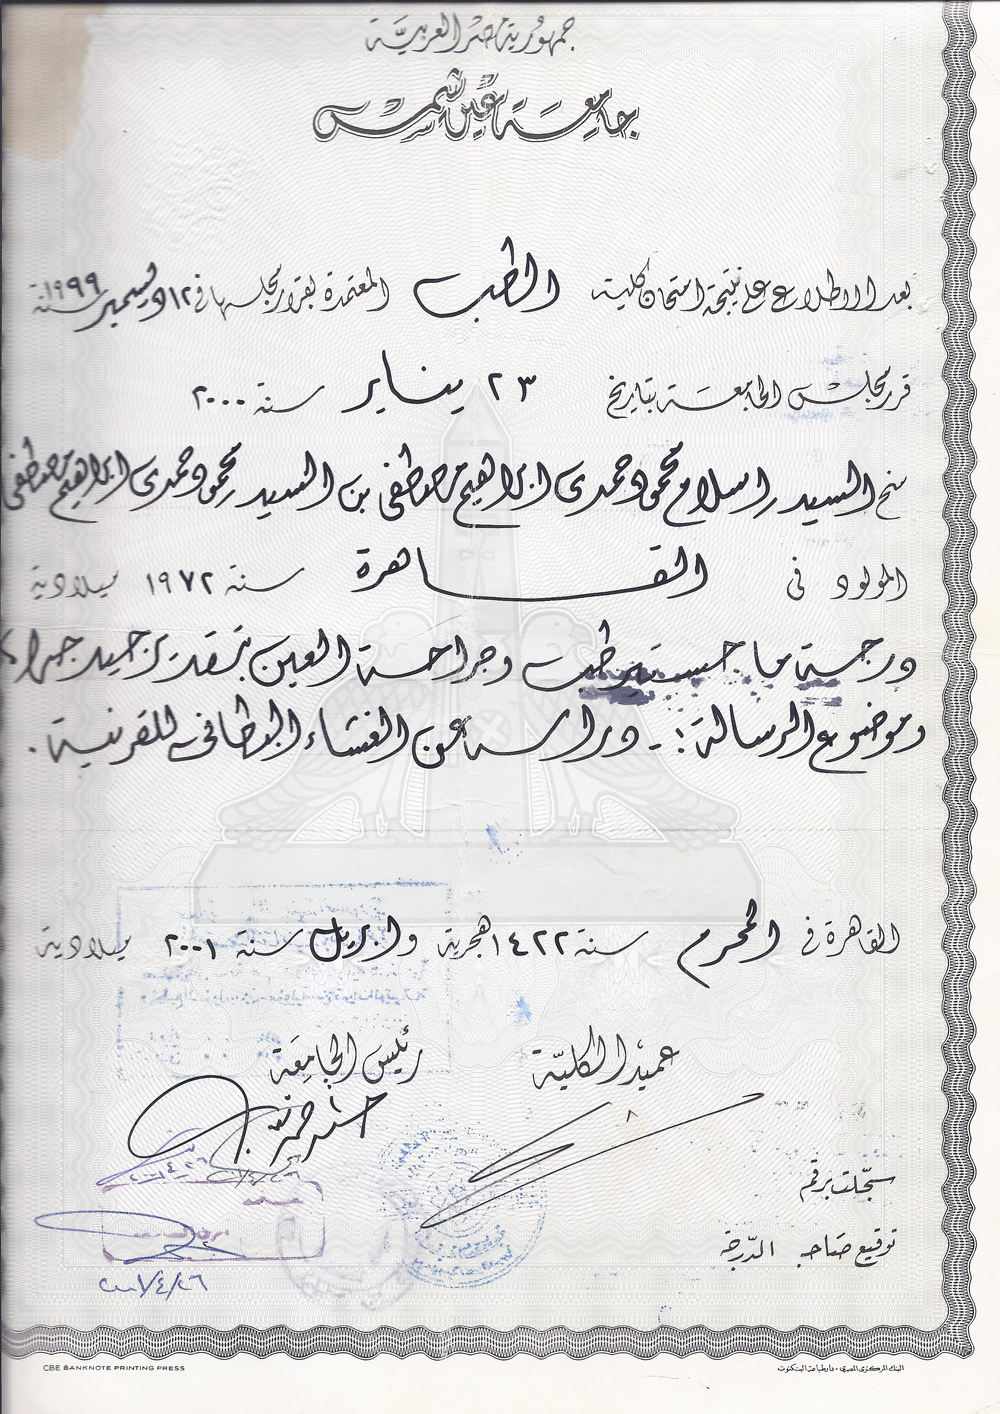 جمهورية مصر العربية
جامعة عين شمس
بعد الاطلاع على نتيجة امتحان كلية الطب المعتمدة بقرار مجلسها في ١٢ ديسمبر سنة ١٩٩٩
قرر مجلس الجامعة بتاريخ ٢٣ يناير سنة ٢٠٠٠
منح السيد / اسلام محمود حمدى ابراهيم مصطفى بن السيد / محمود حمدى ابراهيم مصطفى
المولود في القاهرة سنة ١٩٧٢ ميلادية
درجة ماجستير طب وجراحة العين بتقدير جيد جدا
وموضوع الرسالة :- دراسة عن الغشاء البطانى للقرنية .
القاهرة في المحرم سنة ١٤٢٢ هجرية وابريل سنة ٢٠٠١ ميلادية
عميد الكلية رئيس الجامعة
سجلت برقم
توقيع صاحب الدرجة
٢٠٠١/٤/٢٦
CBE BANKNOTE PRINTING PRESS البنك المركزى المصرى - دار طباعة البنكنوت